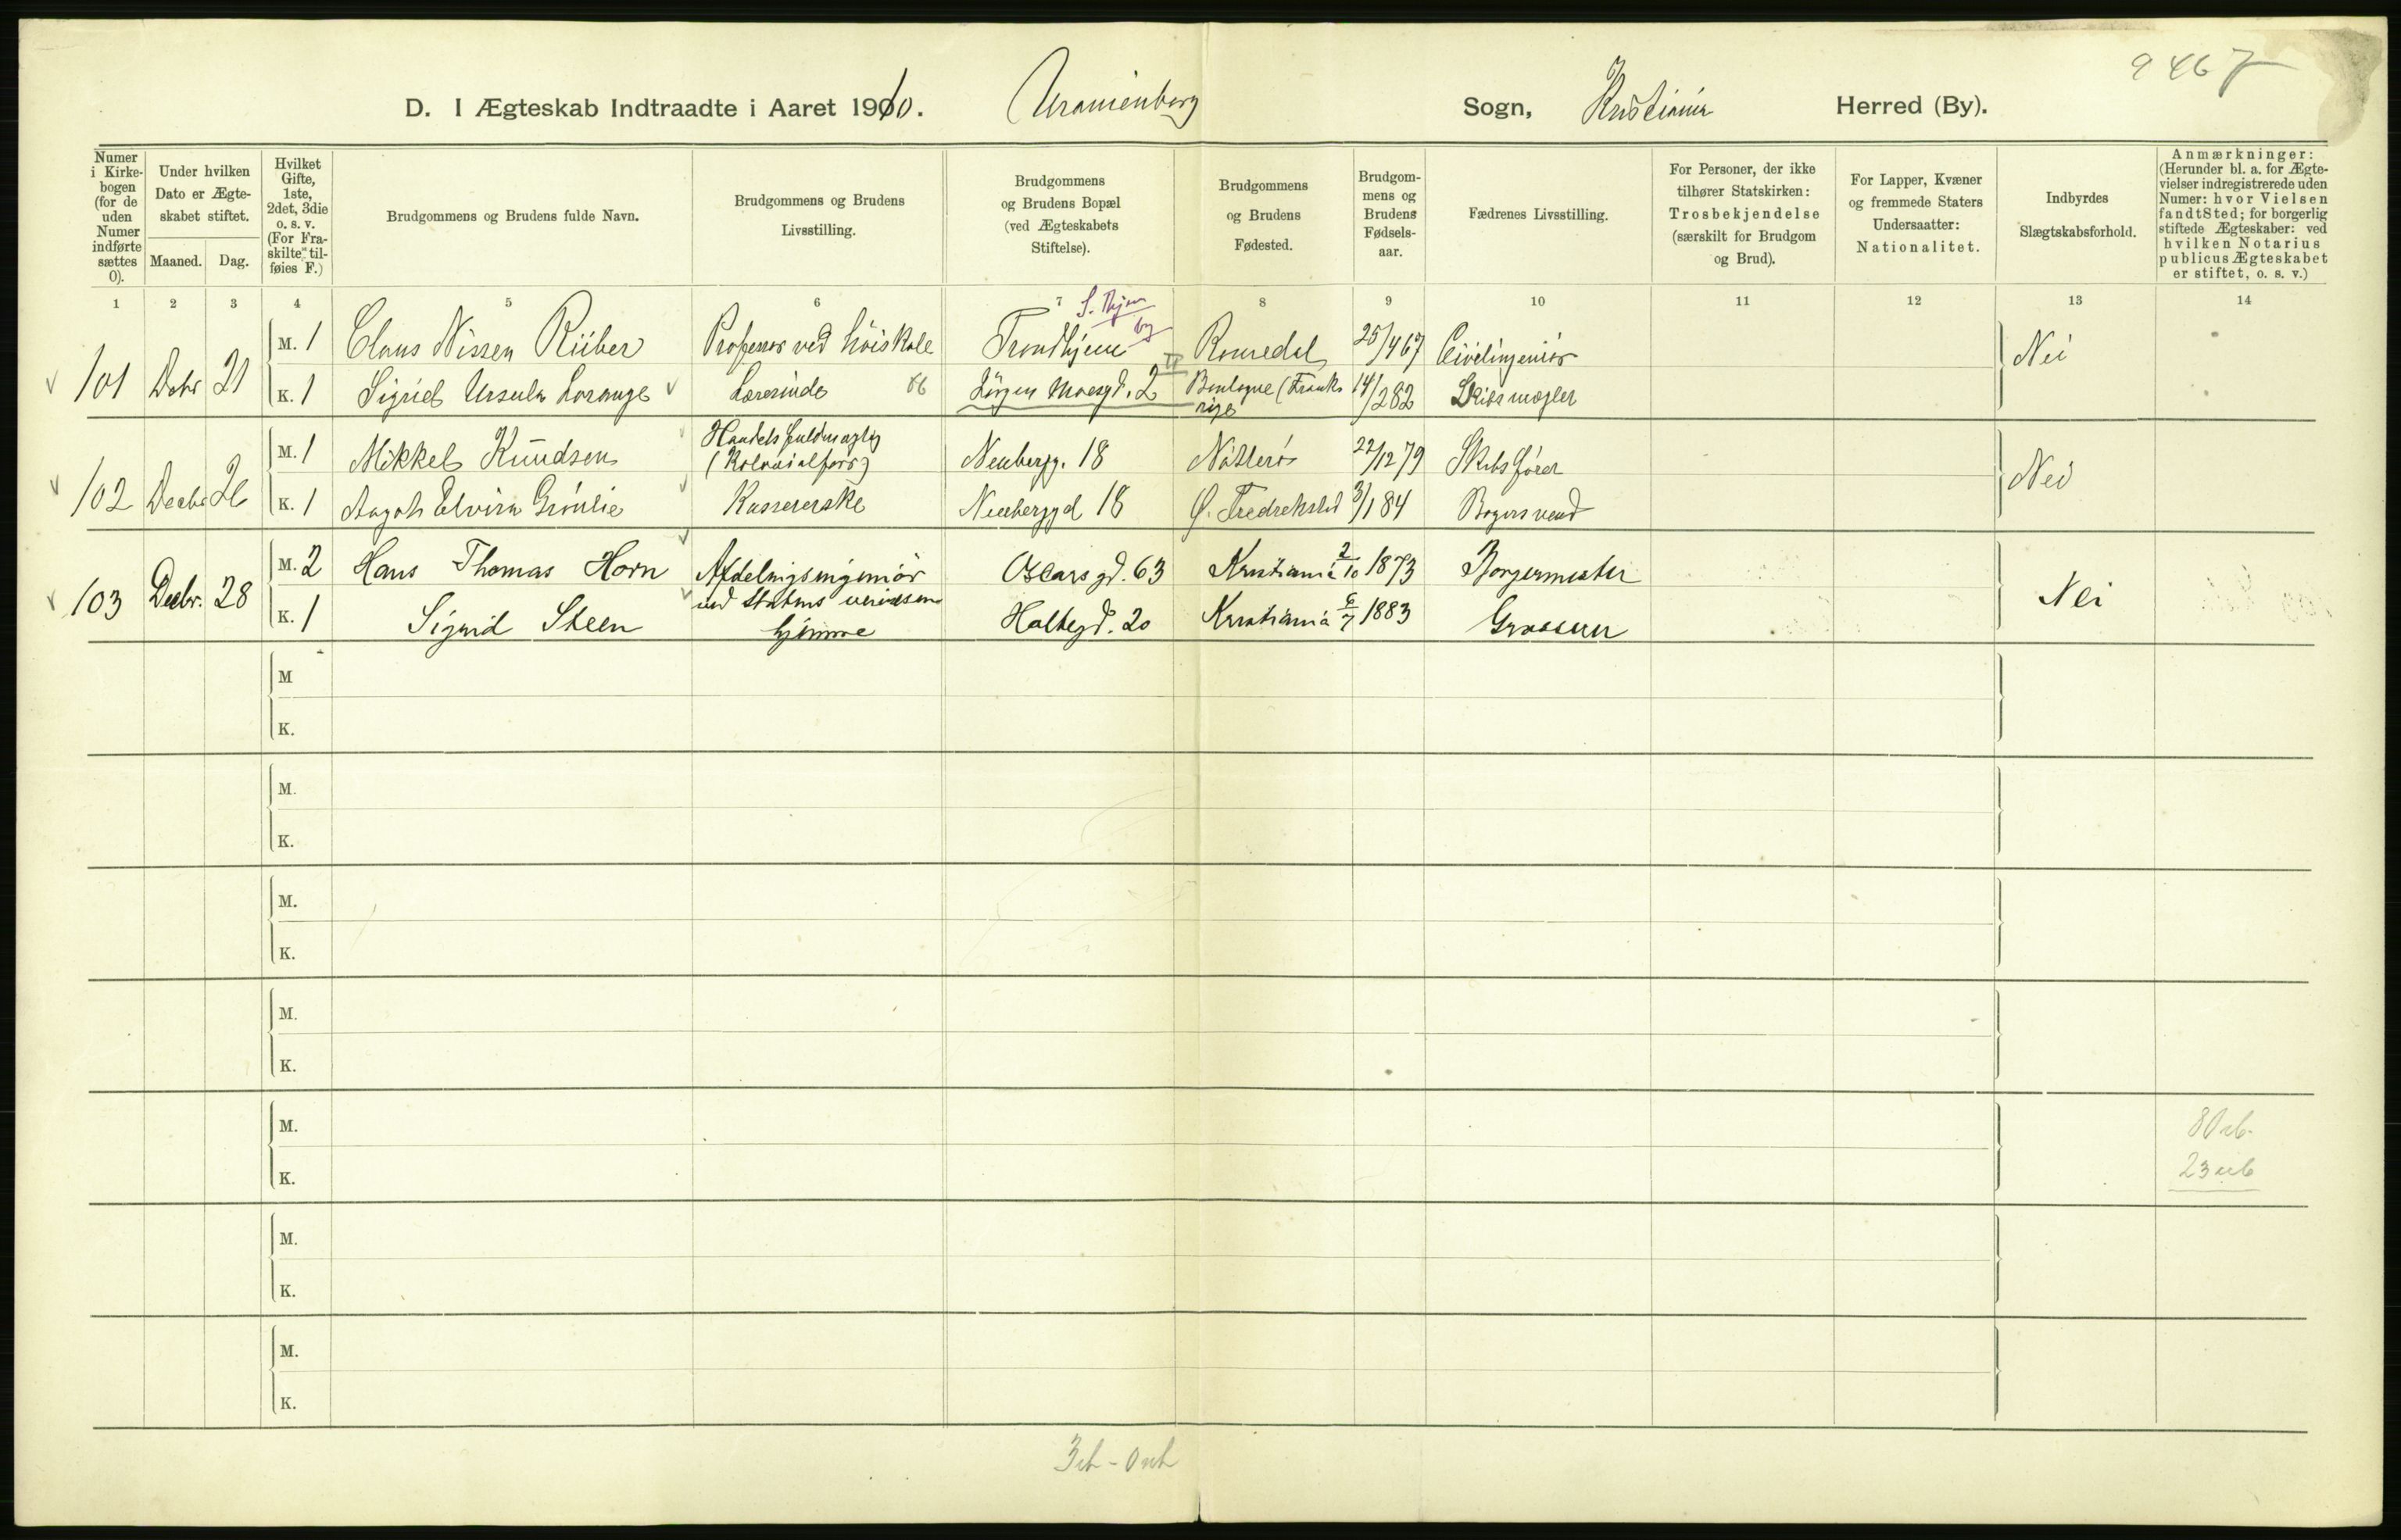 9 467
D. I Ægteskab Indtraadte i Aaret 1910. Uranienborg Sogn, Kristiania Herred (By).
Numer i Kirkebogen (for de uden Numer indførte sættes 0).
Under hvilken Dato er Ægteskabet stiftet.
Maaned. Dag.
Hvilket Gifte, 1ste, 2det, 3die o. s. v. (For Fraskilte tilføies F.)
Brudgommens og Brudens fulde Navn.
Brudgommens og Brudens Livsstilling.
Brudgommens og Brudens Bopæl (ved Ægteskabets Stiftelse).
Brudgommens og Brudens Fødested.
Brudgommens og Brudens Fødselsaar.
Fædrenes Livsstilling.
For Personer, der ikke tilhører Statskirken: Trosbekjendelse (særskilt for Brudgom og Brud).
For Lapper, Kvæner og fremmede Staters Undersaatter: Nationalitet.
Indbyrdes Slægtskabsforhold.
Anmærkninger: (Herunder bl. a. for Ægtevielser indregistrerede uden Numer: hvor Vielsen fandt Sted; for borgerlig stiftede Ægteskaber: ved hvilken Notarius publicus Ægteskabet er stiftet, o. s. v.)
1 2 3 4 5 6 7 8 9 10 11 12 13 14
S. Thjem by
M. 1 Claus Nissen Riiber Professor ved höiskole Trondhjem Romedal 25/4 67 Civilingeniör
101 Debr 21 Nei
K. 1 Sigrid Ursula Lorange Lærerinde 86 Jörgen Moesgd. 2 II Boulogne (Frankrige 14/2 82 Skibsmægler
M. 1 Mikkel Knudsen Handelsfuldmægtig (Kolonialforr) Neubergg. 18 Nötterö 22/12 79 Skibsfører
102 Decbr 26 Nei
K. 1 Aagot Elvira Grönlie Kassererske Neuberggd 18 Ø. Fredrikstad 3/1 84 Bøgersvend
M. 2 Hans Thomas Horn Afdelingsingeniör ved Statens veivæsen Oscarsgd. 63 Kristiania 2/10 1873 Borgermester
103 Decbr. 28 Nei
K. 1 Sigrid Steen hjemme Holtegd. 20 Kristiania 6/7 1883 Grosserer
M
K.
M.
K.
M.
K.
M.
K.
M.
K.
M.
K.
M.
K.